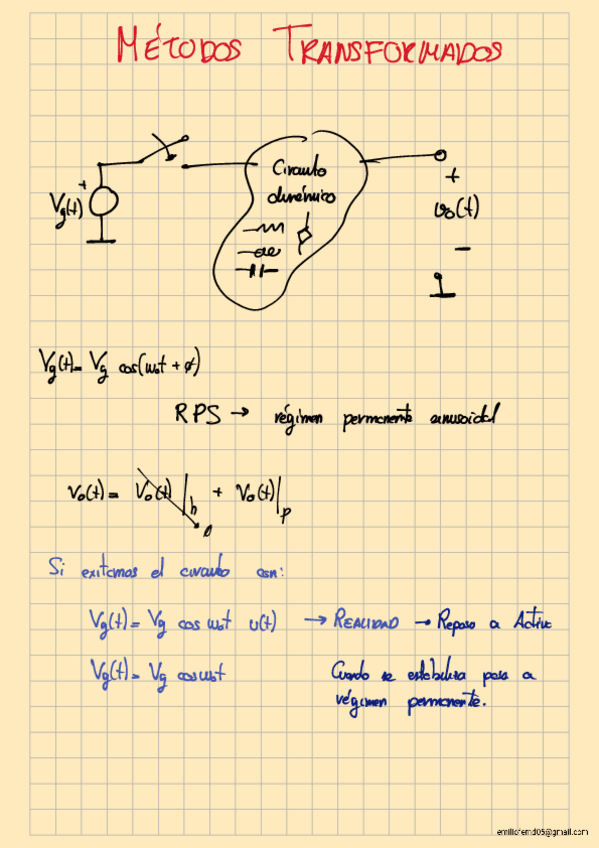 MÉTODOS TRANSFORMADOS
Circuito
dinámico
+
Vg(t)
+
vo(t)
−
Vg(t)= Vg cos(ωot + ϕ)
RPS → régimen permanente sinusoidal
vo(t) = Vo(t)|h + Vo(t)|p
0
Si exitamos el circuito con:
Vg(t)= Vg cos ωot u(t) → REALIDAD → Reposo a Activo
Vg(t)= Vg cos ωot Cuando se estabiliza pasa a
régimen permanente.
emiliofernd05@gmail.com